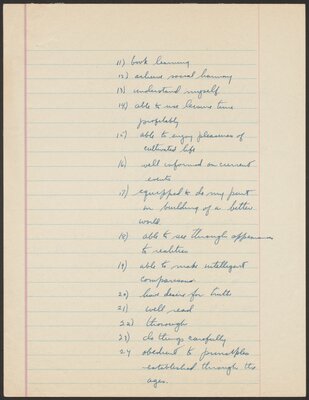 11) book learning
12) achieve social harmony
13) understand myself
14) able to use leisure time
profitably
15) able to enjoy pleasures of
cultivated life
16) well informed on current
events
17) equipped to do my part
in building of a better
world
18) able to see through appearances
to realities
19) able to make intelligent
comparisons
20) have desire for truth
21) well read
22) thorough
23) do things carefully
24 obedient to principles
established through the
ages.